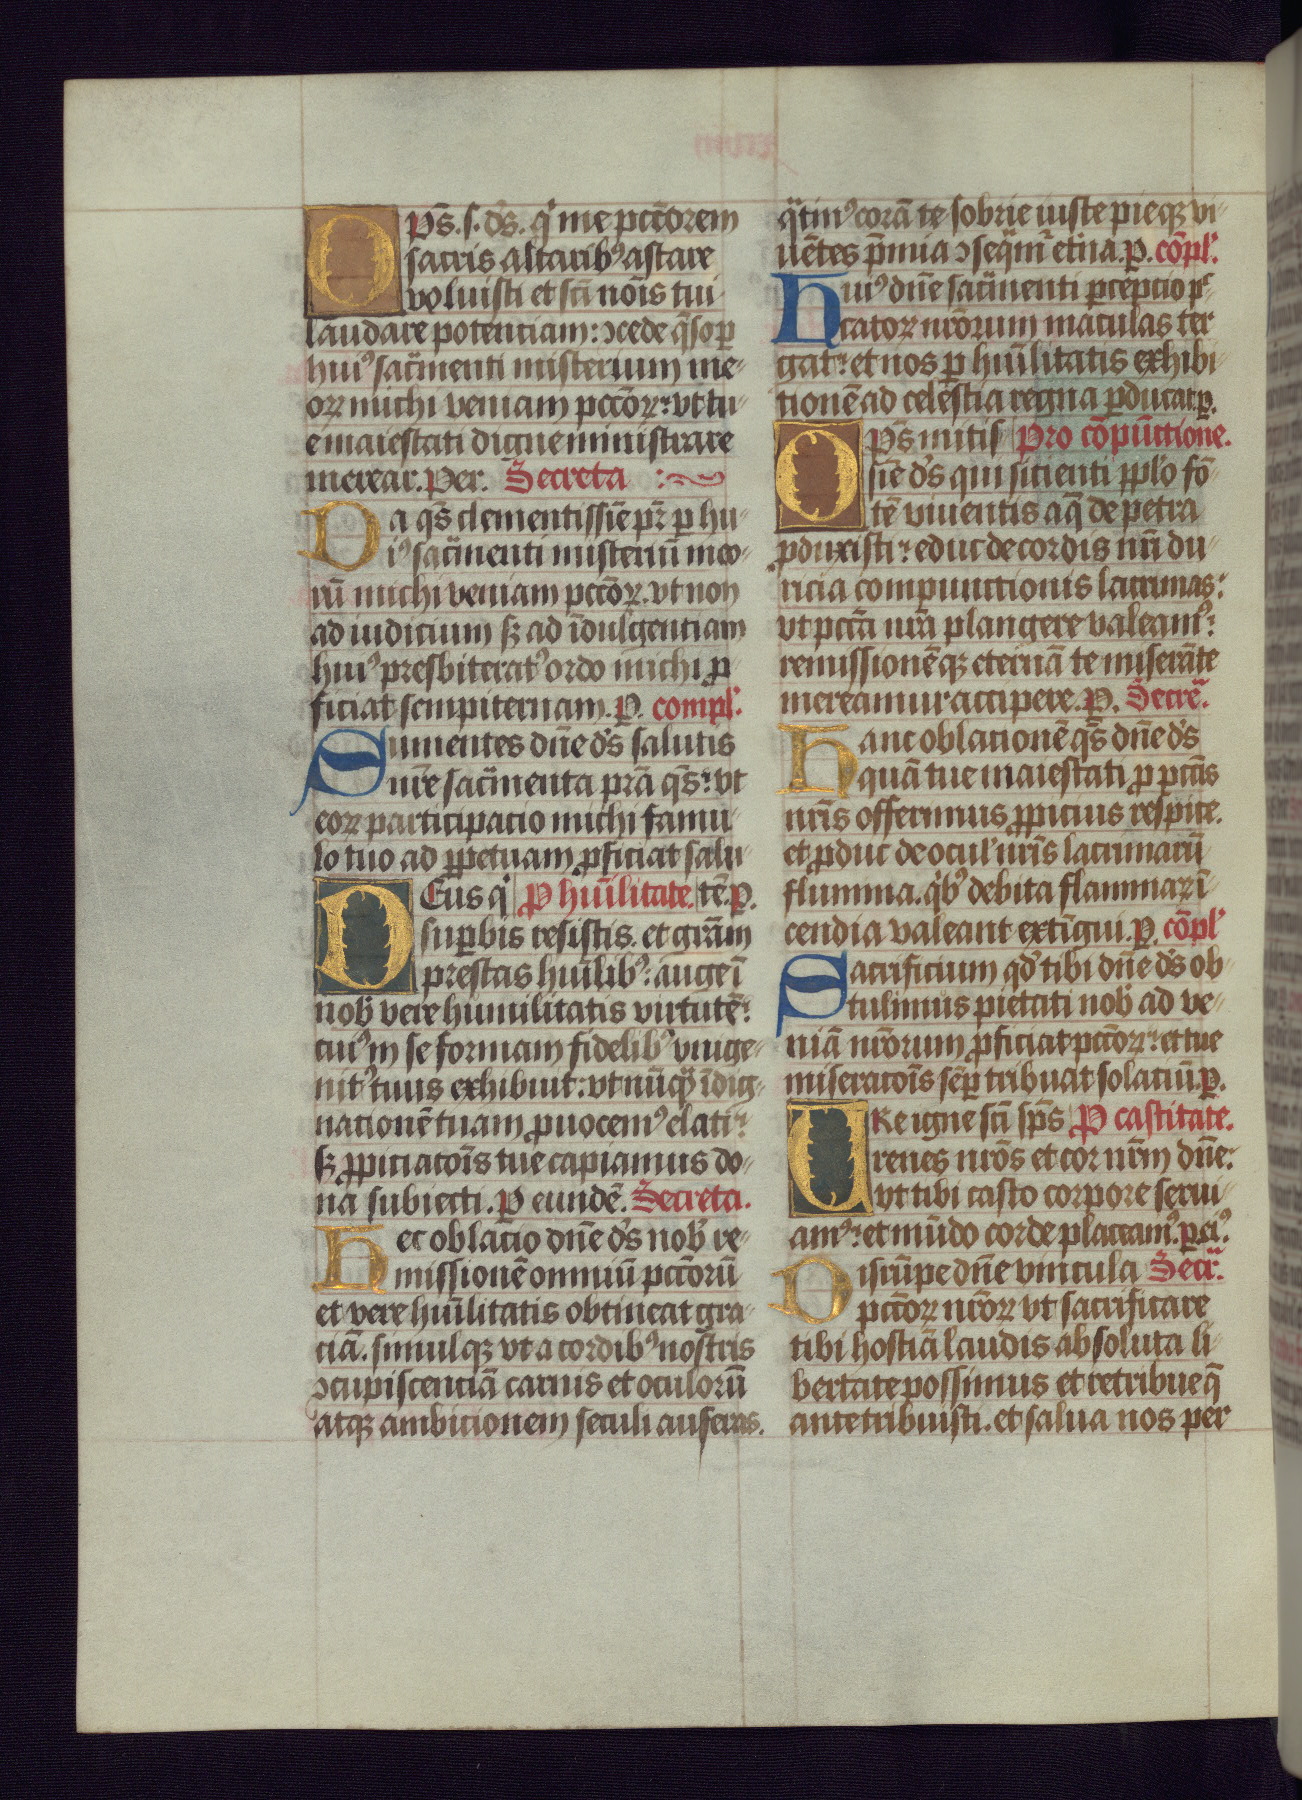 Op̄s. s. d̄s. qͥ me pcc̄orem
sacris altaribꝰ astare
voluisti et sc̄i nōis tui
laudare potentiam: ↄcede q̄so ꝑ
huiꝰ sac̄menti misterium me-
oꝝ michi veniam pcc̄oꝝ: vt tu-
e maiestati digne ministrare
merear. Per. Secreta
Da q̄s clementissīe pr̄ ꝑ hu-
iꝰ sac̄menti misteriū meo-
rū michi veniam pcc̄oꝝ. vt non
ad iudicium sꝫ ad īdulgentiam
huiꝰ presbiteratꝰ ordo michi ꝓ-
ficiat sempiternam. P. compl̄.
Sumentes dn̄e d̄s salutis
nr̄e sac̄menta pr̄a q̄s: vt
eoꝝ participacio michi famu-
lo tuo ad ꝑpetuam ꝓficiat salu-
Deus qͥ P hūilitate. tē. P.
suꝑbis resistis. et grām
prestas hūilibꝰ: auge ī
nob̄ vere humilitatis virtutē:
cuiꝰ in se formam fidelibꝰ vnige-
nitꝰ tuus exhibuit: vt nūqͣ īdig-
nationē tuam ꝓuocemꝰ elati:
sꝫ ꝓpiciacōis tue capiamus do-
na subiecti. P eundē. Secreta.
Hec oblacio dn̄e d̄s nob̄ re-
missionē omniū pccōrū
et vere hūilitatis obtineat gra-
ciā. simulqꝫ vt a cordibꝰ nostris
ↄcupiscenciā carnis et oculorū
atqꝫ ambicionem seculi auferas.
qͣtinꝰ corā te sobrie iuste pieqꝫ vi-
uētes p̄mia ↄseqͣmr̄ et̄na. P. cōpl̄.
Huiꝰ dn̄e sac̄menti ꝑcepcio p̄-
catoꝝ nr̄orum maculas ter
gat: et nos ꝑ hūilitatis exhibi-
tionē ad celestia regna ꝑducat. P.
Op̄s mitis Pro cōpūctione.
sīe d̄s qui sicienti ppl̄o fō-
tē viuentis aq̄ de petra
ꝓduxisti: educ de cordis nr̄i du-
ricia compunctionis lacrimas:
vt pccā nr̄a plangere valeamꝰ:
remissionēqꝫ eternā te miserāte
mereamur accipere. P. Secrēͣ.
Hanc oblacionē q̄s dn̄e d̄s
quā tue maiestati ꝓ pccīs
nr̄is offerimus ꝓpicius respice.
et ꝓduc de ocul̄ nr̄is lacrimarū
flumina. qͥbꝰ debita flammaꝝ ī-
cendia valeant extīgui. P. cōpl̄
Sacrificium qd̄ tibi dn̄e d̄s ob-
tulimus pietati nob̄ ad ve-
niā nr̄orum ꝓficiat pcc̄oꝝ: et tue
miseracōis sēꝑ tribuat solaciū. P.
Ure igne sc̄i sp̄s P castitate.
renes nr̄os et cor nr̄m dn̄e:
vt tibi casto corpore serui-
amꝰ: et mūdo corde placeamꝰ. P. eiꝰ.
Disrūpe dn̄e vincula Secrͣ.
pcc̄oꝝ nr̄oꝝ vt sacrificare
tibi hostiā laudis absoluta li-
bertate possimus et retribue q̄
ante tribuisti. et salua nos per